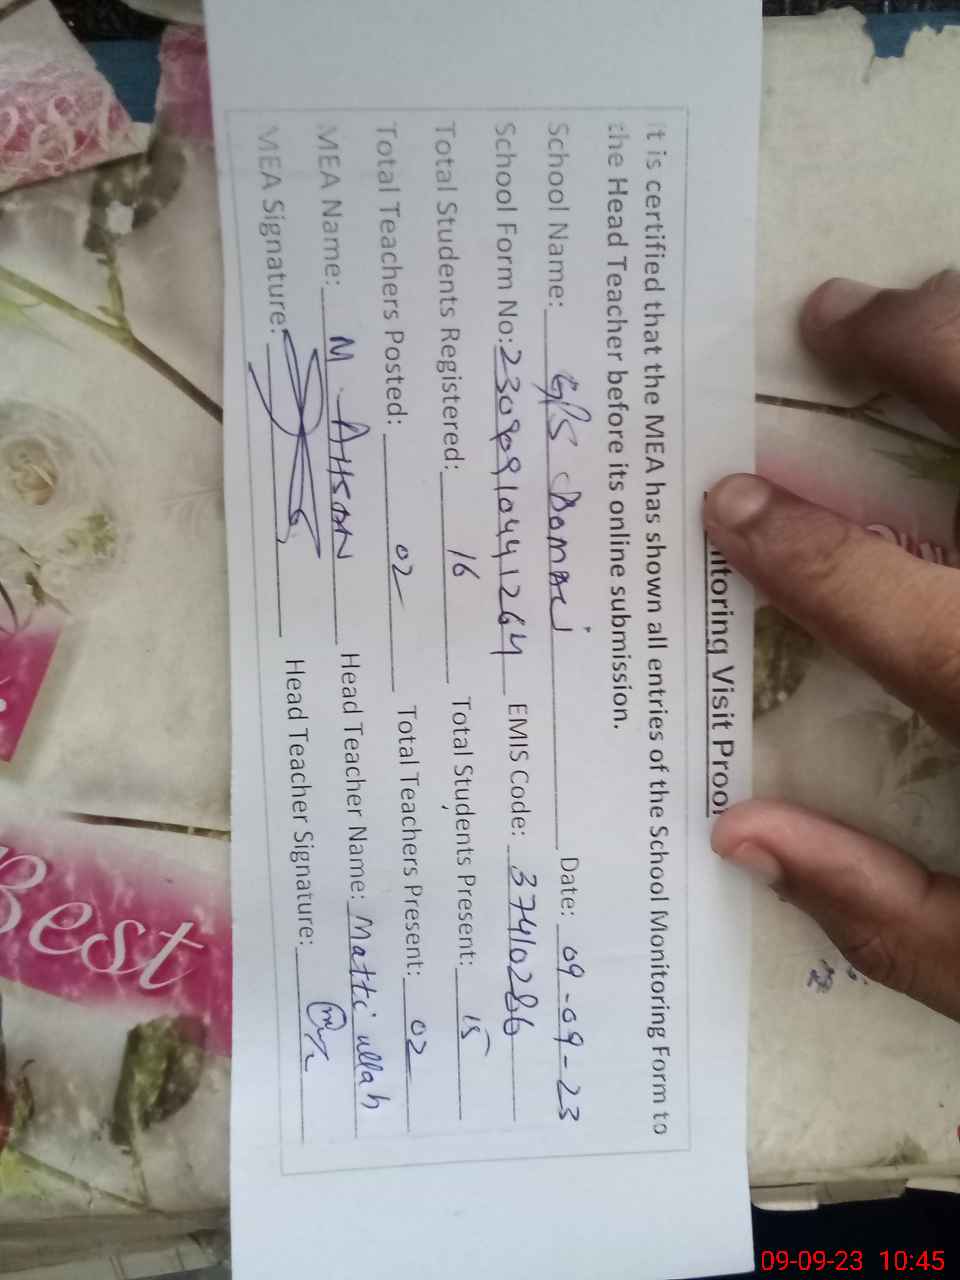 nitoring Visit Proof
It is certified that the MEA has shown all entries of the School Monitoring Form to
the Head Teacher before its online submission.
School Name: GPS Domaci Date: 09-09-23
School Form No: 2309091044 1264 EMIS Code: 37410286
Total Students Registered: 16 Total Students Present: 15
Total Teachers Posted: 02 Total Teachers Present: 02
MEA Name: M. AHSAN Head Teacher Name: Matti ullah
MEA Signature: Head Teacher Signature:
Best
09-09-23 10:45